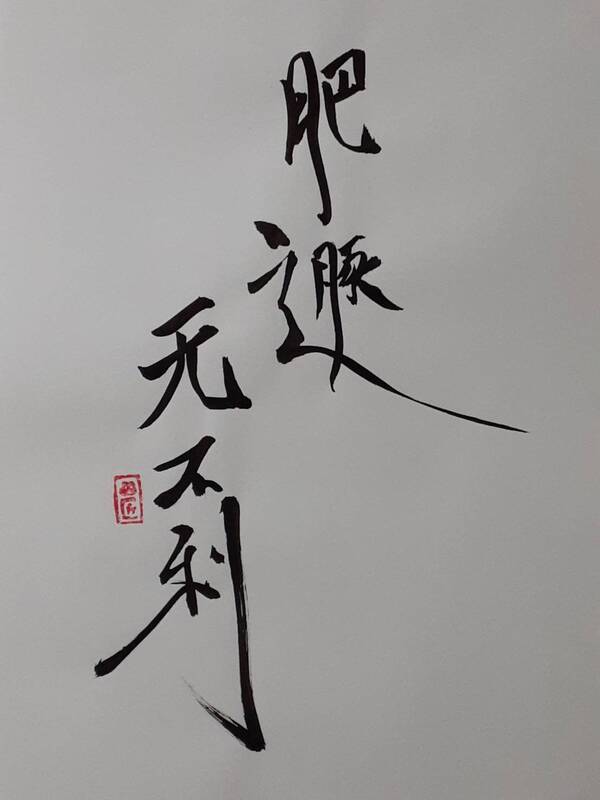 肥遯
无不利